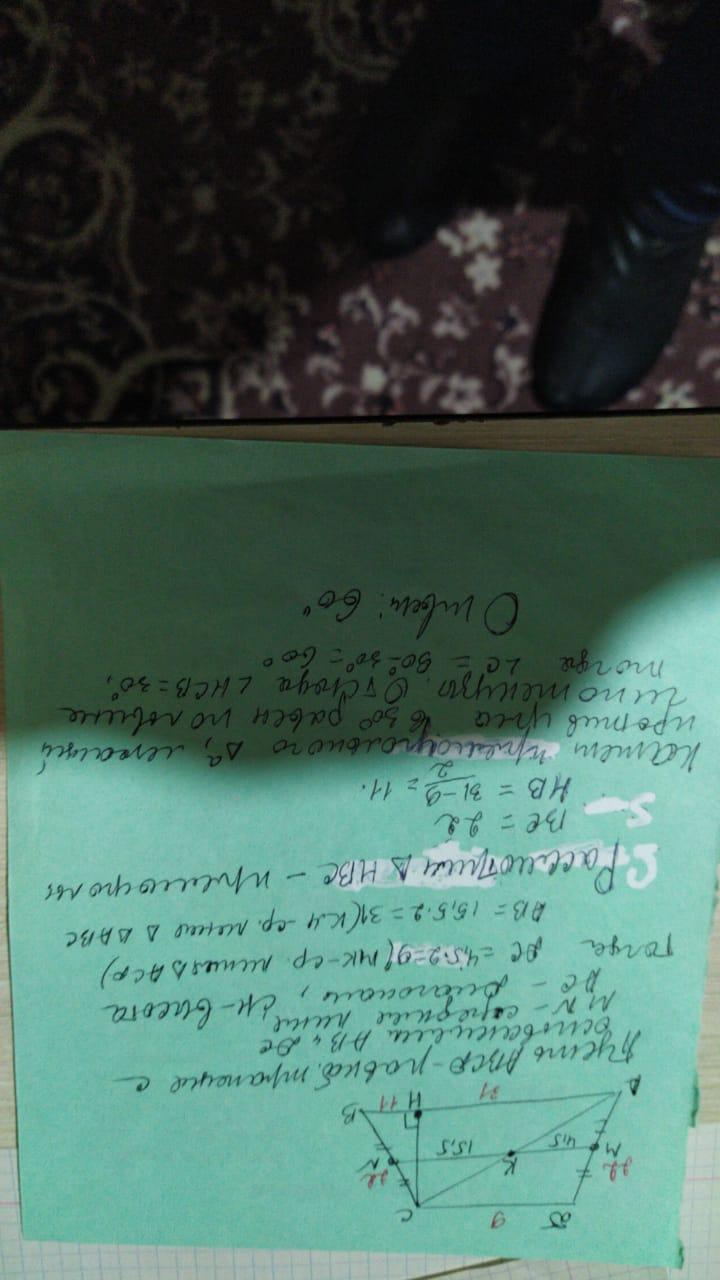 D 9 C
22 M 4,5 K 15,5 N 22
A 31 H 11 B
Пусть ABCD - равноб. трапеция с
основаниями AB и DC
MN - средняя линия, CH - высота
AC - диагональ,
тогда DC = 4,5·2=9 (MK - ср. линия △ ACD)
AB = 15,5·2 = 31 (KN - ср. линия △ ABC
Рассмотрим △ HBC - прямоуголь
BC = 22
HB = 31-9/2 = 11.
Катет прямоугольного △, лежащий
против угла в 30° равен половине
гипотенузы. Отсюда ∠HCB = 30°,
тогда ∠C = 90°-30° = 60°
Ответ: 60°